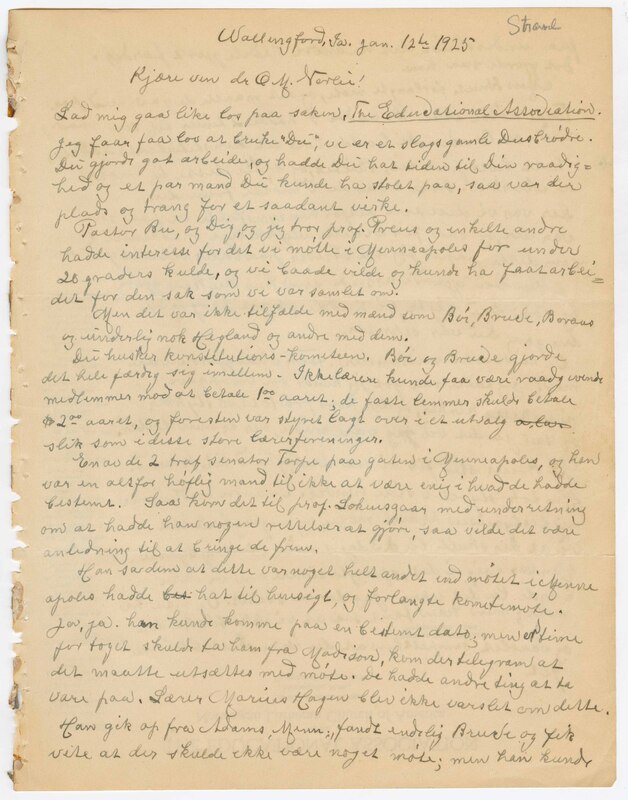 Strand
Wallingford, Ia. Jan. 12te 1925
Kjære ven dr O. M. Norlie!
Lad mig gaa like løs paa saken, The Educational Association.
Jeg faar faa lov at bruke "Du", vi er et slags gamle Dusbrødre.
Du gjorde got arbeide, og hadde Du hat tiden til Din raadig=
hed og et par mand Du kunde ha stolet paa, saa var der
plads og trang for et saadant virke.
Pastor Bu, og Dig, og jeg tror prof. Preus og enkelte andre
hadde interesse for det vi møtte i Minneapolis for under
20 graders kulde, og vi baade vilde og kunde ha faat arbei=
det for den sak som vi var samlet om.
Men det var ikke tilfælde med mænd som Bøe, Brude,
og underlig nok Hegland og andre med dem.
Du husker konstitutions-kometeen. Bøe og Brude gjorde
det hele færdig sig imellem. Ikkelærere kunde faa være raadgivende
medlemmer mod at betale 1 00 aaret; de faste lemmer skulde betale
$2 00 aaret, og foresten var styret lagt over i et utvalg
slik som i disse store lærerforeninger.
En av de 2 traf senator Torpe paa gaten i Minneapolis, og han
var en altfor høflig mand til ikke at være enig i hvad de hadde
bestemt. Saa kom det til prof. Lokensgaar med underretning
om at hadde han nogen rettelser at gjøre, saa vilde det være
anledning til at bringe de frem.
Han sa dem at dette var noget helt andet end møtet i Minne
apolis hadde hat til hensigt, og forlangte kometemøte.
Ja, ja. han kunde komme paa en bestemt dato; men time
for toget skulde ta ham fra Madison, kom der telegram at
det maatte utsættes med møte. De hadde andre ting at ta
vare paa. Lærer Marius Hagen blev ikke varslet om dette.
Han gik op fra Adams, Minn., fandt endelig Brude og fik
vite at der skulde ikke være noget møte; men han kunde